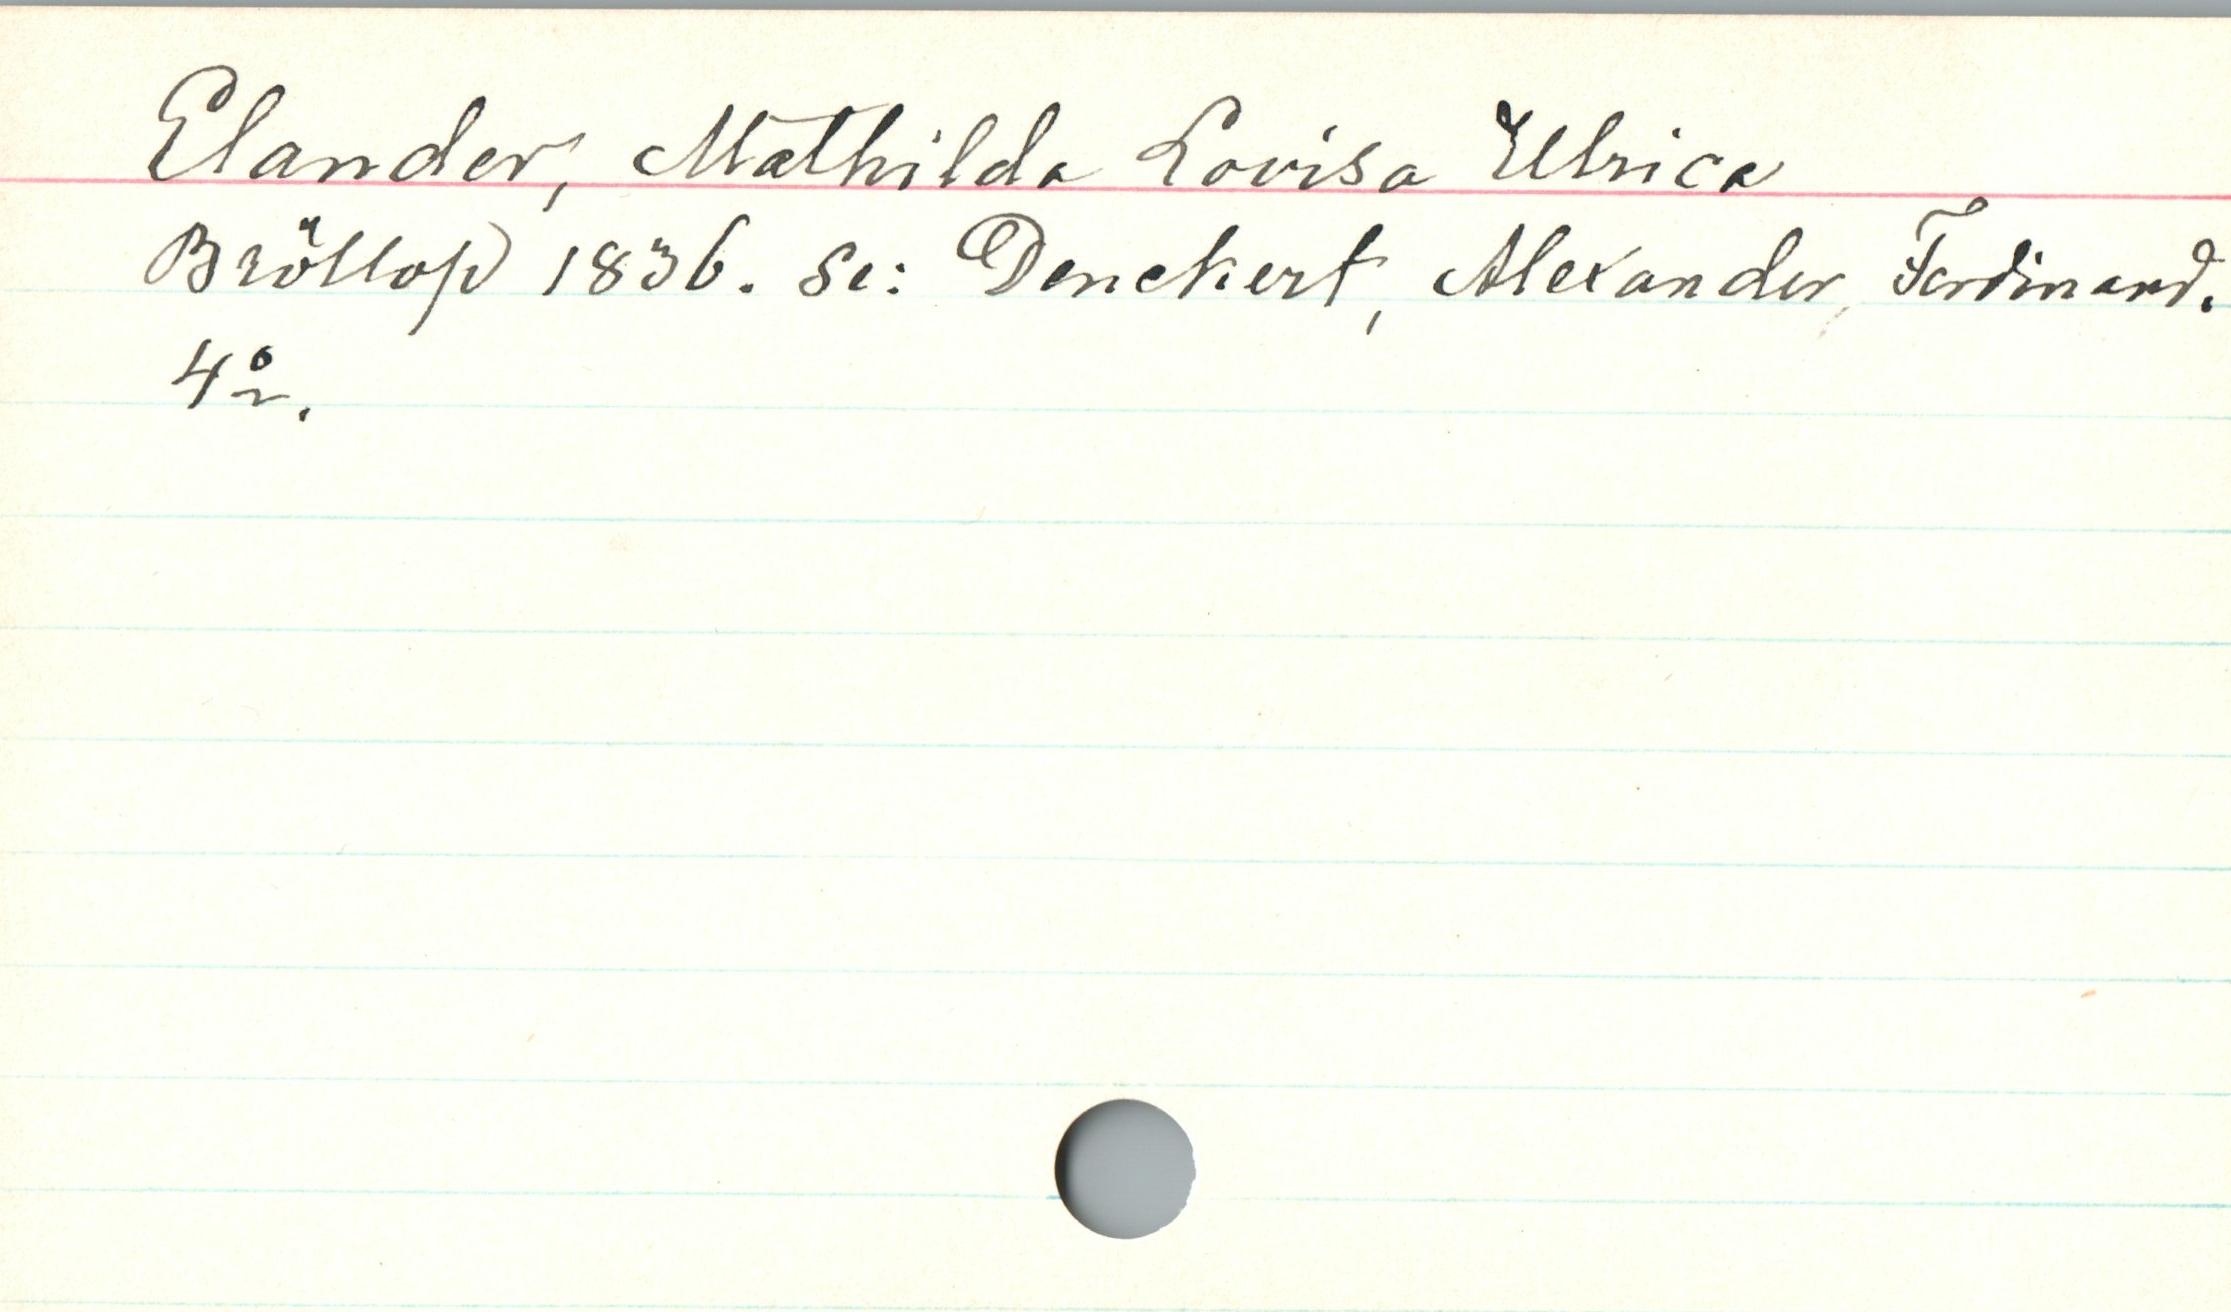 Elander, Mathilda Lovisa Ulrica
Bröllop 1836. Se: Denckert, Alexander, Ferdinand.
4º.